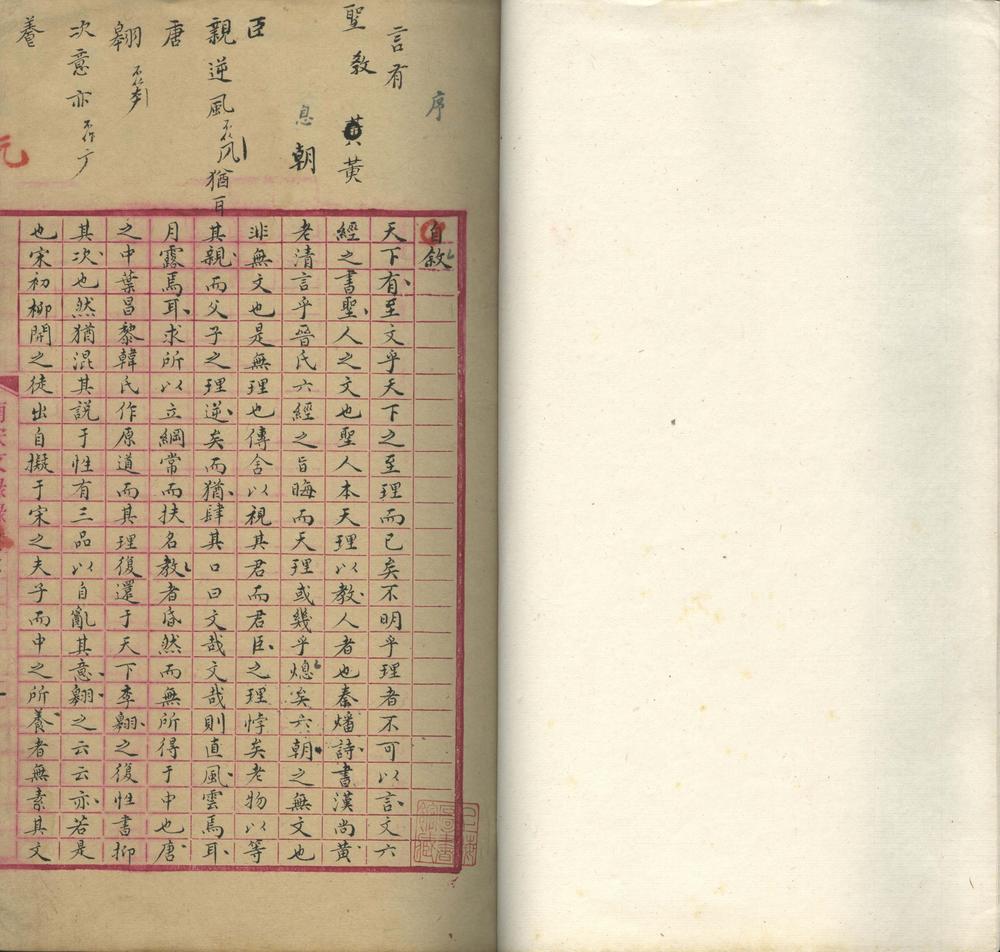 序
言有
聖教 黄黄
息朝
臣
親逆風不作风猶耳
唐
翱不作
次意亦不作
養
自敘
天下有至文乎天下之至理而已矣不明乎理者不可以言文六
經之書聖人之文也聖人本天理以教人者也秦燔詩書漢尚黃
老清言乎晉氏六經之旨晦而天理或幾乎熄矣六朝之無文也
非無文也是無理也傳舍以視其君而君臣之理悖矣老物以等
其親而父子之理逆矣而猶肆其口曰文哉文哉則直風雲焉耳
月露焉耳求所以立綱常而扶名教者昏然而無所得于中也唐
之中葉昌黎韓氏作原道而其理復還于天下李翱之復性書抑
其次也然猶混其説于性有三品以自亂其意翱之云云亦若是
也宋初柳開之徒出自擬于宋之夫子而中之所養者無素其文
南宋文錄錄